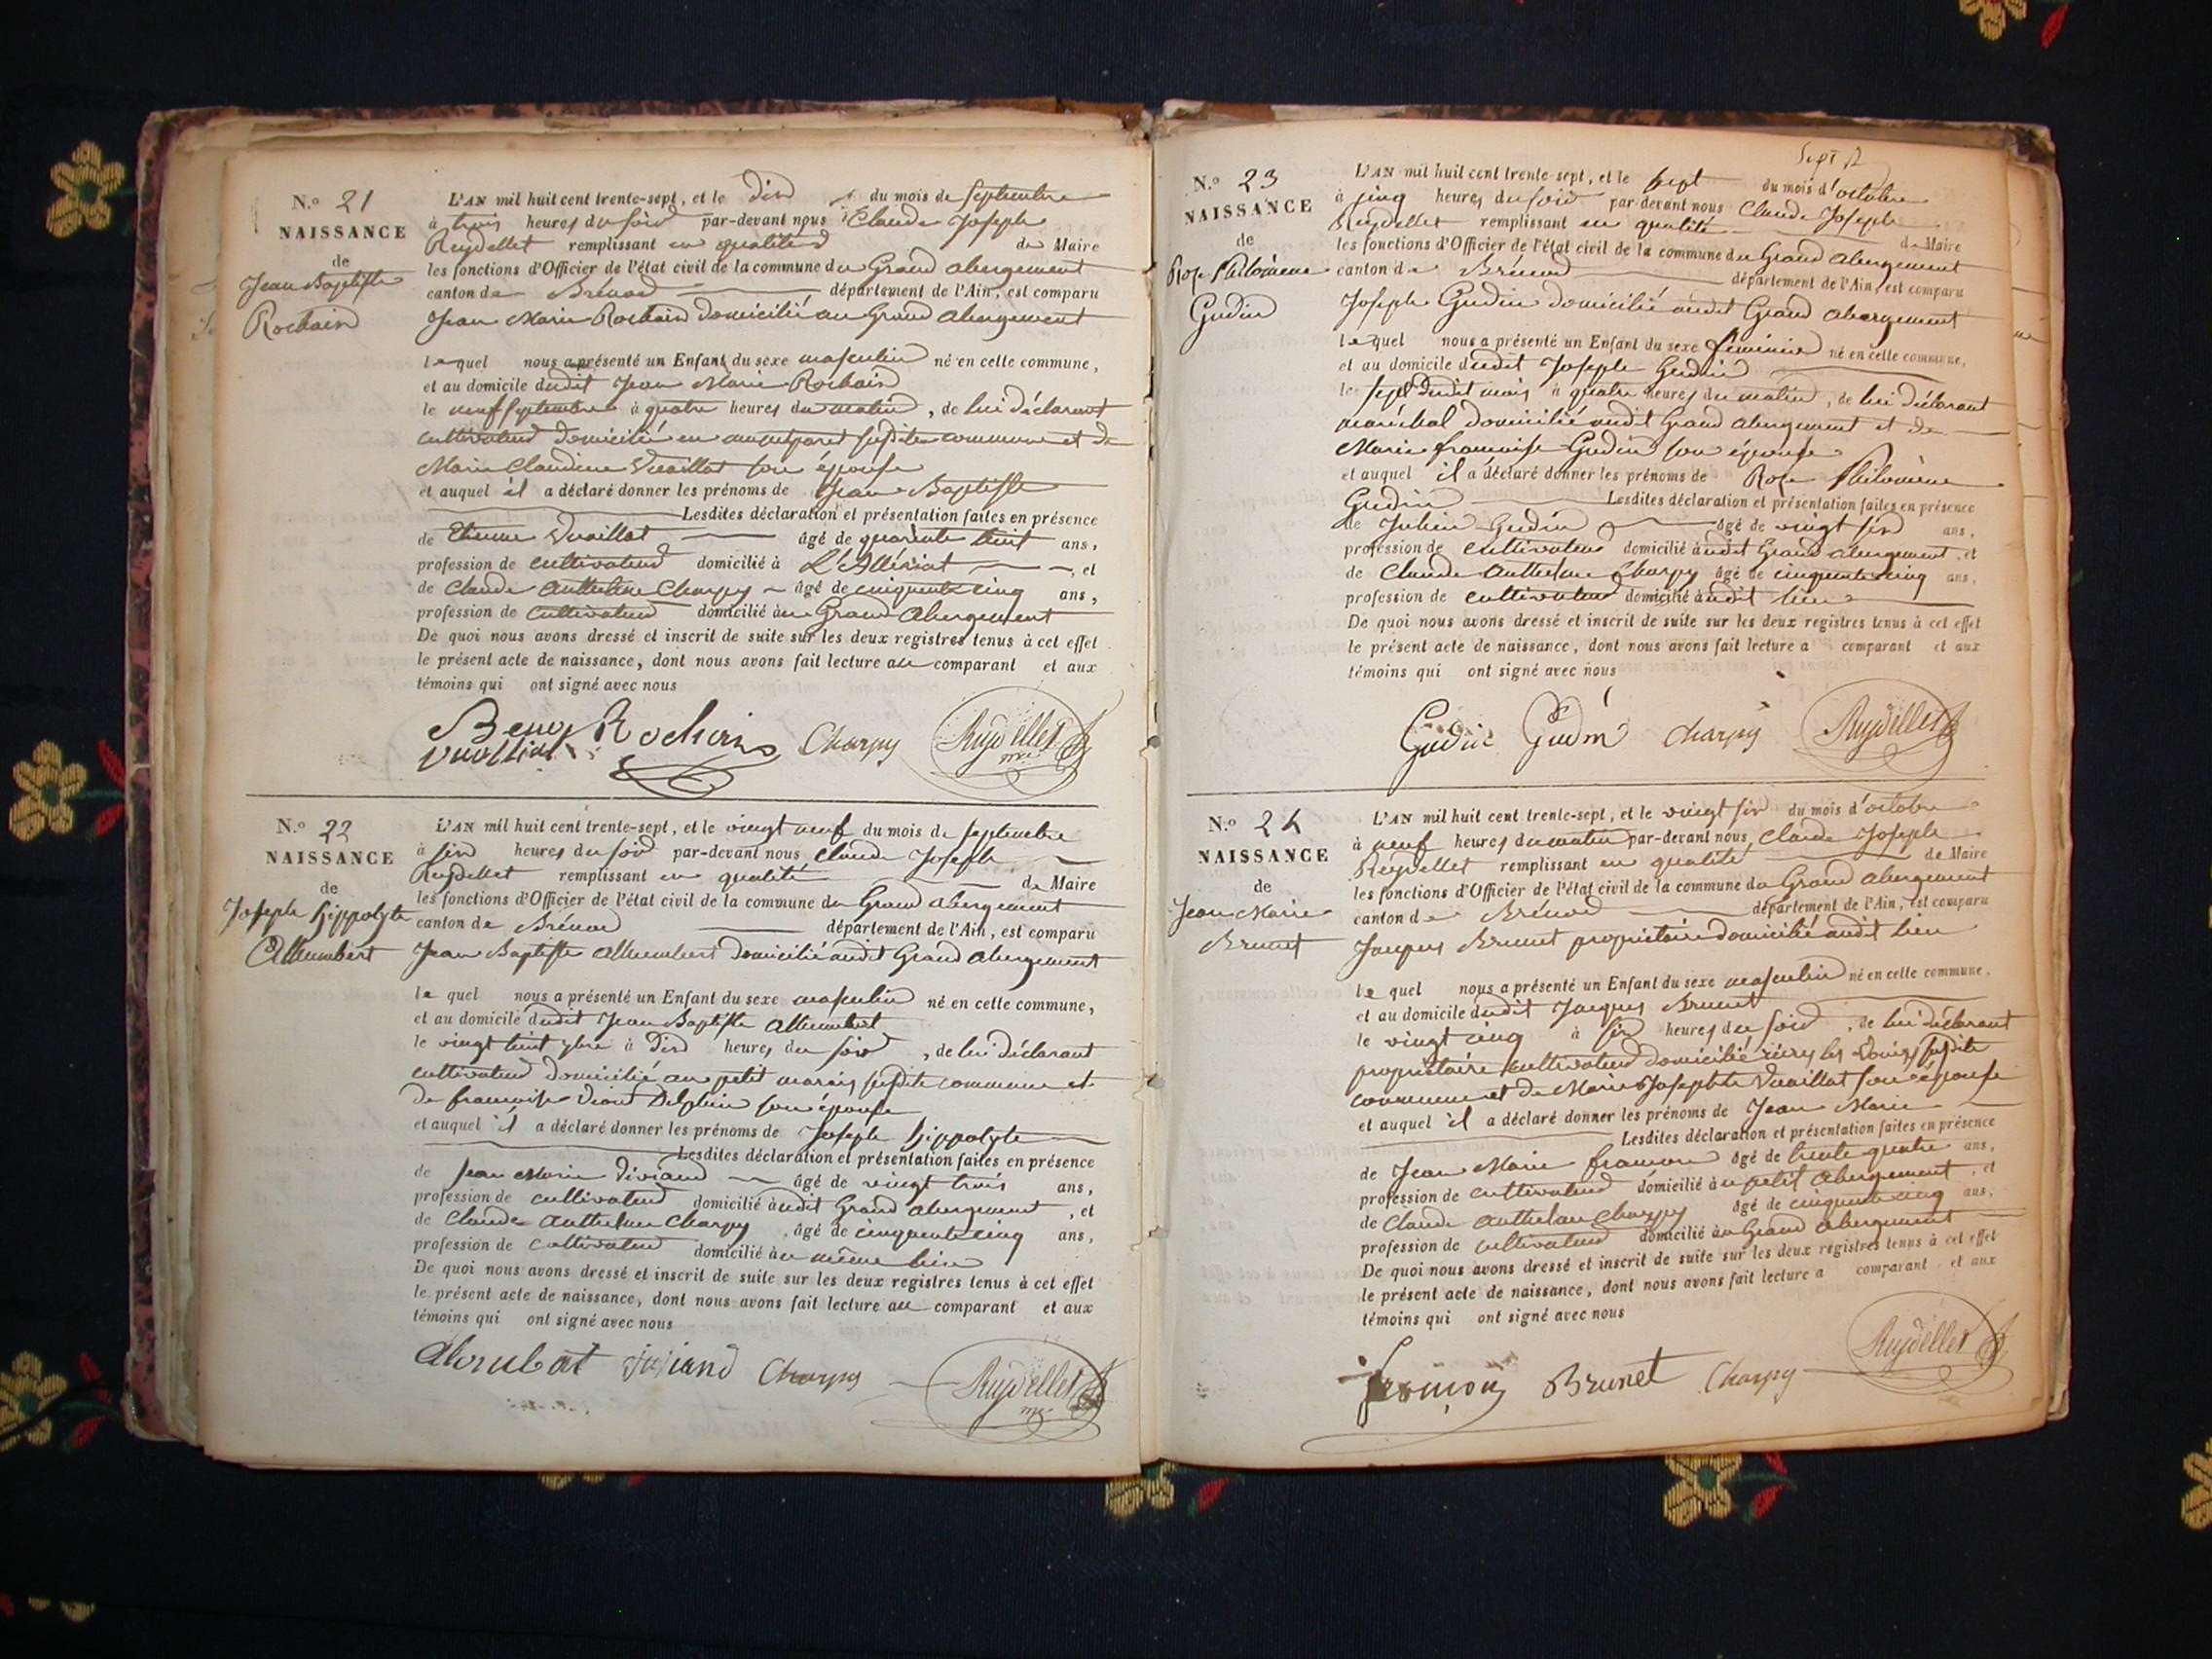 N.º 21
NAISSANCE
de
Jean Baptiste
Rochaix
L'AN mil huit cent trente-sept, et le dix du mois de septembre
à trois heures du soir par-devant nous Claude Joseph
Reydellet remplissant en qualité de Maire
les fonctions d'Officier de l'état civil de la commune du Grand abergement
canton de Brénod département de l'Ain, est comparu
Jean Marie Rochaix domicilié au Grand abergement
lequel nous a présenté un Enfant du sexe masculin né en cette commune,
et au domicile dudit Jean Marie Rochaix
le neuf septembre à quatre heures du matin, de lui déclarant
cultivateur domicilié en susdite commune et de
Marie Claudine Vuaillat son épouse
et auquel il a déclaré donner les prénoms de Jean Baptiste
Lesdites déclaration et présentation faites en présence
de Etienne Vuaillat âgé de quarante huit ans,
profession de cultivateur domicilié à L'Allériat, et
de Claude Anthelme Charpy âgé de cinquante cinq ans,
profession de cultivateur domicilié au Grand Abergement
De quoi nous avons dressé et inscrit de suite sur les deux registres tenus à cet effet
le présent acte de naissance, dont nous avons fait lecture au comparant et aux
témoins qui ont signé avec nous
Rochaix Charpy Reydellet
N.º 22
NAISSANCE
de
Joseph hippolyte
Allhumbert
L'AN mil huit cent trente-sept, et le vingt neuf du mois de septembre
à six heures du soir par-devant nous Claude Joseph
Reydellet remplissant en qualité de Maire
les fonctions d'Officier de l'état civil de la commune du Grand abergement
canton de Brénod département de l'Ain, est comparu
Jean Baptiste Allhumbert domicilié audit Grand abergement
lequel nous a présenté un Enfant du sexe masculin né en cette commune,
et au domicile dudit Jean Baptiste Allhumbert
le vingt huit 7bre à dix heures du soir, de lui déclarant
cultivateur domicilié au petit marais susdite commune et
de françoise Delphin son épouse
et auquel il a déclaré donner les prénoms de Joseph hippolyte
Lesdites déclaration et présentation faites en présence
de Jean Marie Viviand âgé de vingt trois ans,
profession de cultivateur domicilié audit Grand abergement, et
de Claude Anthelme Charpy âgé de cinquante cinq ans,
profession de cultivateur domicilié au même lieu
De quoi nous avons dressé et inscrit de suite sur les deux registres tenus à cet effet
le présent acte de naissance, dont nous avons fait lecture au comparant et aux
témoins qui ont signé avec nous
Charpy Reydellet
N.º 23
NAISSANCE
de
Rose Philomène
Gudin
L'AN mil huit cent trente-sept, et le sept du mois d'octobre
à cinq heures du soir par devant nous Claude Joseph
Reydellet remplissant en qualité de Maire
les fonctions d'Officier de l'état civil de la commune du Grand abergement
canton de Brénod département de l'Ain, est comparu
Joseph Gudin domicilié audit Grand abergement
lequel nous a présenté un Enfant du sexe féminin né en cette commune,
et au domicile dudit Joseph Gudin
le sept dudit mois à quatre heures du matin, de lui déclarant
maréchal domicilié audit Grand abergement et de
Marie françoise Gudin son épouse
et auquel il a déclaré donner les prénoms de Rose Philomène
Gudin Lesdites déclaration et présentation faites en présence
de Julien Gudin âgé de vingt six ans,
profession de cultivateur domicilié audit Grand abergement, et
de Claude Anthelme Charpy âgé de cinquante cinq ans,
profession de cultivateur domicilié audit lieu
De quoi nous avons dressé et inscrit de suite sur les deux registres tenus à cet effet
le présent acte de naissance, dont nous avons fait lecture a comparant et aux
témoins qui ont signé avec nous
Gudin Gudin Charpy Reydellet
N.º 24
NAISSANCE
de
Jean Marie
Brunet
L'AN mil huit cent trente-sept, et le vingt six du mois d'octobre
à neuf heures du matin par-devant nous Claude Joseph
Reydellet remplissant en qualité de Maire
les fonctions d'Officier de l'état civil de la commune du Grand abergement
canton de Brénod département de l'Ain, est comparu
Jacques Brunet propriétaire domicilié audit lieu
lequel nous a présenté un Enfant du sexe masculin né en cette commune,
et au domicile dudit Jacques Brunet
le vingt cinq à six heures du soir, de lui déclarant
propriétaire cultivateur domicilié susdite
commune et de Marie Josephte Vuaillat son épouse
et auquel il a déclaré donner les prénoms de Jean Marie
Lesdites déclaration et présentation faites en présence
de Jean Marie françon âgé de trente quatre ans,
profession de cultivateur domicilié au petit Abergement, et
de Claude Anthelme Charpy âgé de cinquante cinq ans,
profession de cultivateur domicilié au Grand abergement
De quoi nous avons dressé et inscrit de suite sur les deux registres tenus à cet effet
le présent acte de naissance, dont nous avons fait lecture a comparant et aux
témoins qui ont signé avec nous
françon Brunet Charpy Reydellet